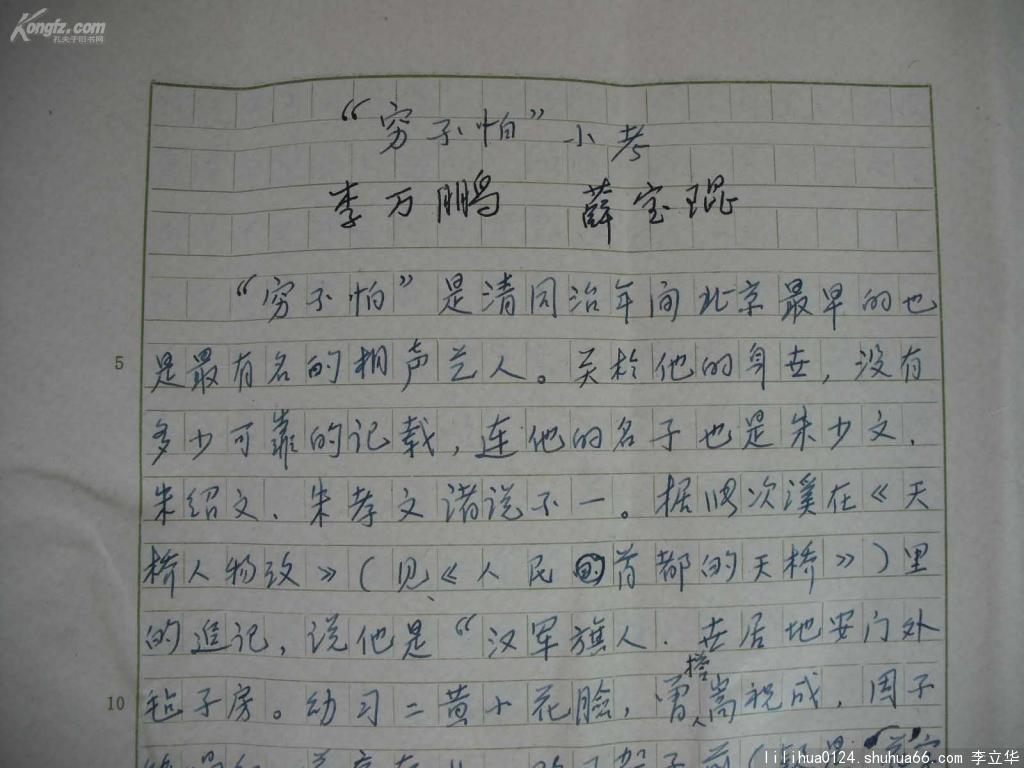 Kongfz.com
孔夫子旧书网
“穷不怕”小考
李万鹏 薛宝琨
“穷不怕”是清同治年间北京最早的也
5 是最有名的相声艺人。关於他的身世,没有
多少可靠的记载,连他的名子也是朱少文、
朱绍文、朱孝文诸说不一。据 次溪在《天
桥人物攷》(见《人民 首都的天桥》)里
的追记,说他是“汉军旗人.世居地安门外
10 毡子房。幼习二黄小花脸,曾 搭 嵩祝成,因子
lilihua0124.shuhua66.com 李立华